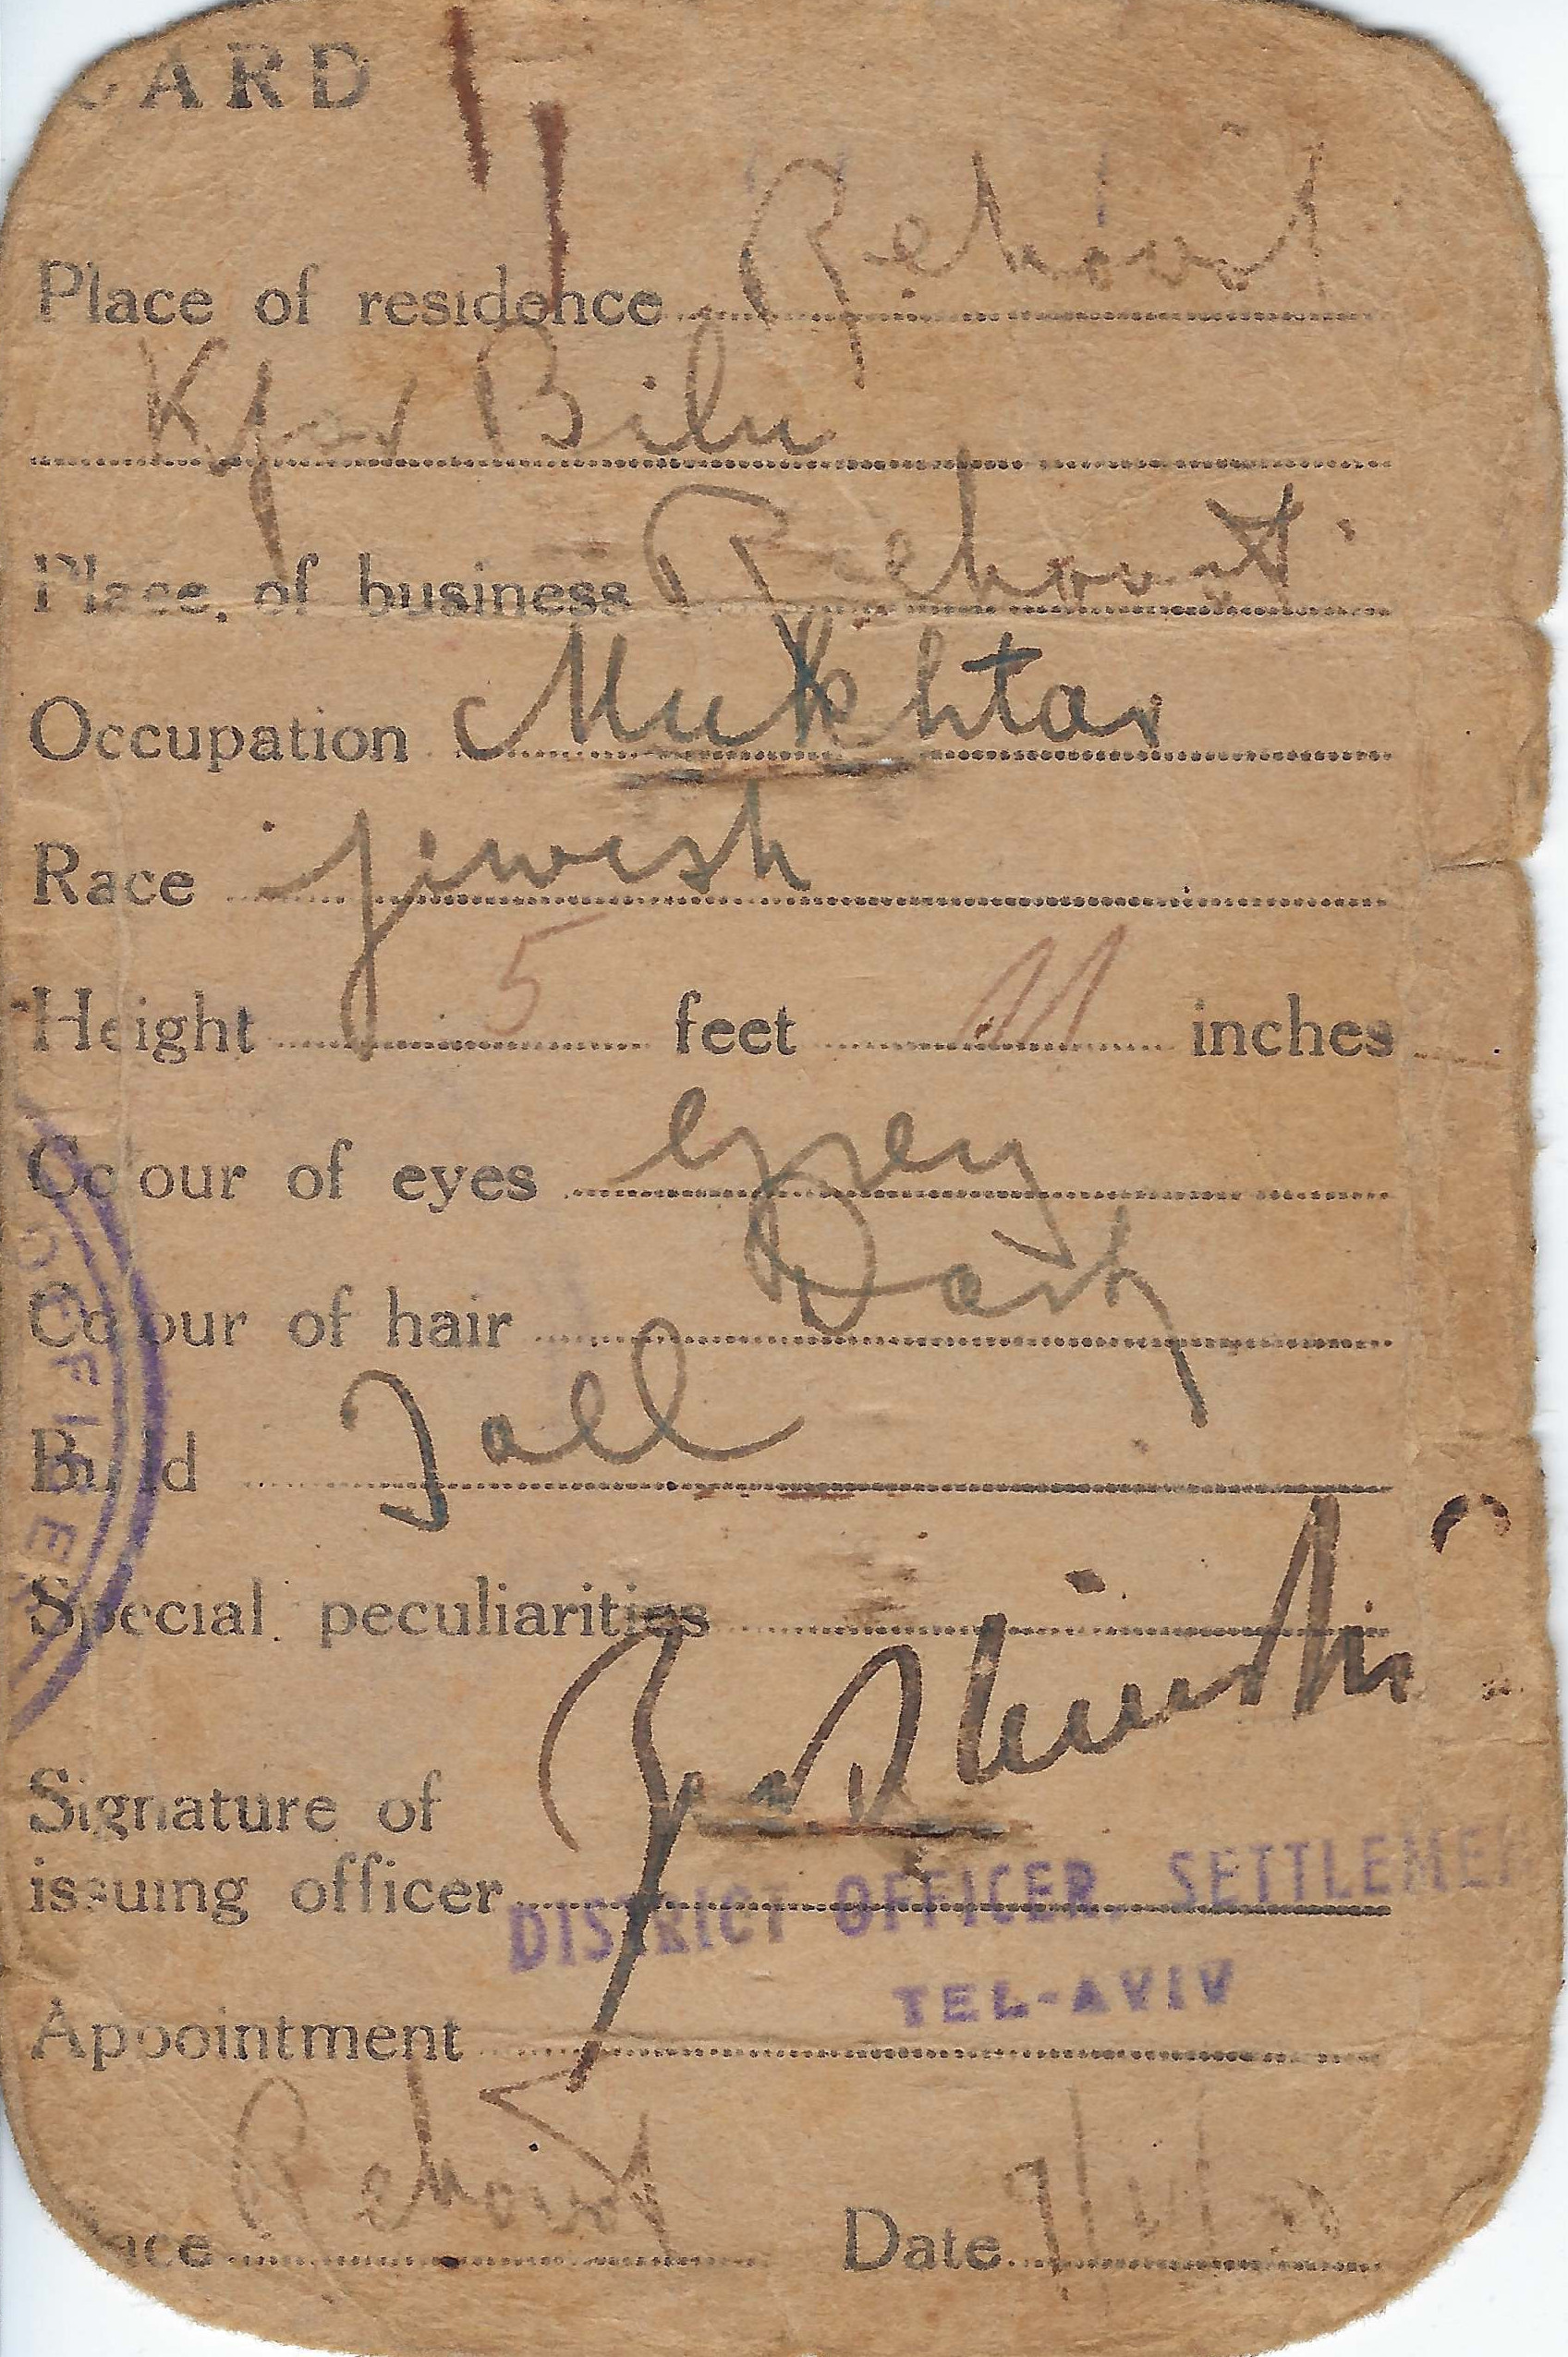 CARD
Place of residence Rehovot
Kfar Bilu
Place of business Rehovot
Occupation Mukhtar
Race Jewish
Height 5 feet 11 inches
Colour of eyes Grey
Colour of hair Dark
Build Tall
Special peculiarities
Signature of
issuing officer
DISTRICT OFFICER, SETTLEMEN
TEL-AVIV
Appointment
Place Rehovot Date
OFFICE